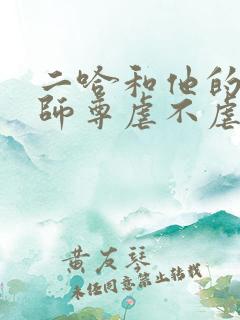 二哈和他的
师尊虐不虐
黄友琴
未经同意禁止转载